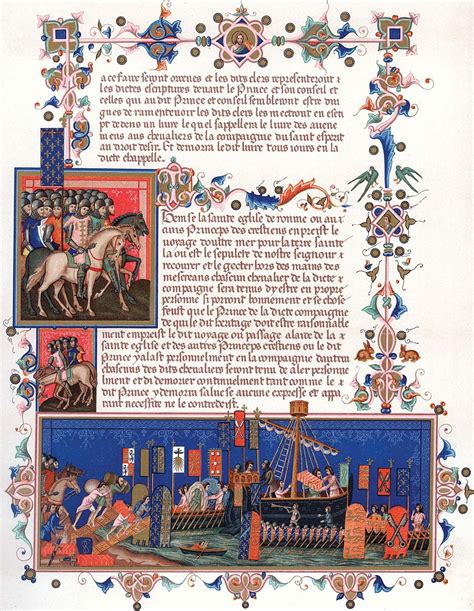 a ce faire seront ordenes et les dits clers representeront
les dictes escriptures devant le Prince et son conseil et
celles qui au dit Prince et conseil sembleront estre dig
nes de ramentenoir les dits clers les mectront en escr
pt dedens un livre le quel s'appellera le livre des avene
mens aus chevaliers de la compaignie du saint esprit
au droit desir. Et demorra le dit livre tous jours en la
dicte chappelle.
Item se la sainte eglise de romme ou au
cuns Princeps des crestiens enpreist le
voyage doultre mer pour la terre sainte
la ou est le sepulcre de nostre seignour
recourer et le gecter hors des mains des
mescreans chascun chevalier de la dicte
compagnie sera tenus dy estre en propre
personne si porront bonnement et se chose
fust que le Prince de la dicte compagnie
de qui le dit heritage doit estre raisonnable
ment empreist le dit voyage ou passage alaire de la
sainte eglise et es autres Princeps crestiens ou le dit
Prince y alast personnelment en la compaignie dautrui
chascuns des dits chevaliers seront tenu de aler personne
lment et di demorer continuelment tant comme le
dit Prince y demorra salu se aucune expresse et appa
rant necessite ne le contredeist.